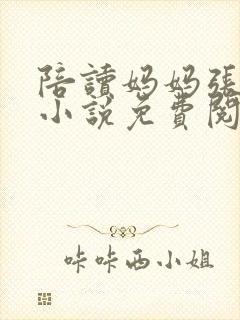 陪讀媽媽張
小說免費閱
咔咔西小姐